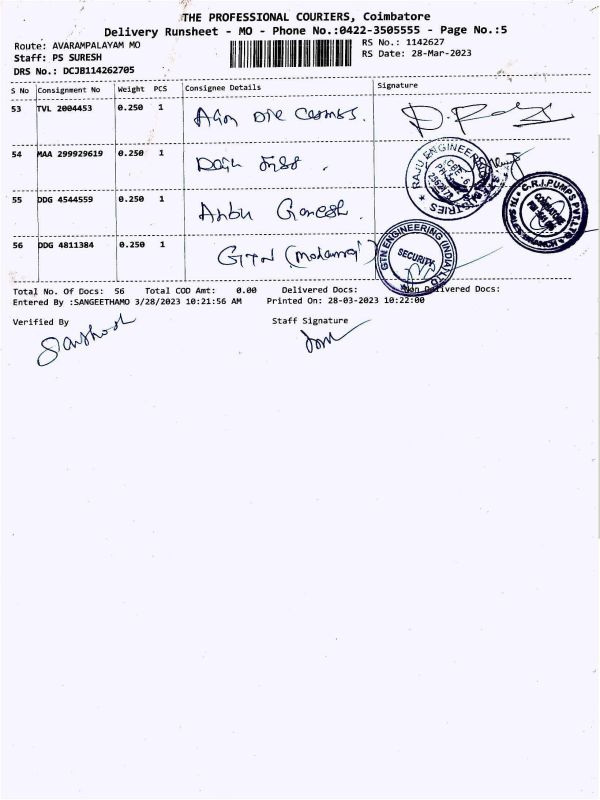 THE PROFESSIONAL COURIERS, Coimbatore
Delivery Runsheet - MO - Phone No.:0422-3505555 - Page No.:5
Route: AVARAMPALAYAM MO
RS No.: 1142627
Staff: PS SURESH
RS Date: 28-Mar-2023
DRS No.: DCJB114262705
S No Consignment No Weight PCS Consignee Details Signature
53 TVL 2004453 0.250 1
54 MAA 299929619 0.250 1
RAJU ENGINEERING
55 DDG 4544559 0.250 1 Anbu Ganesh
C.R.I.PUMPS PVT.LTD
56 DDG 4811384 0.250 1 GTN
GTN ENGINEERING (INDIA) LTD
SECURITY
Total No. Of Docs: 56 Total COD Amt: 0.00 Delivered Docs: Non Delivered Docs:
Entered By :SANGEETHAMO 3/28/2023 10:21:56 AM Printed On: 28-03-2023 10:22:00
Verified By Staff Signature
Santhosh